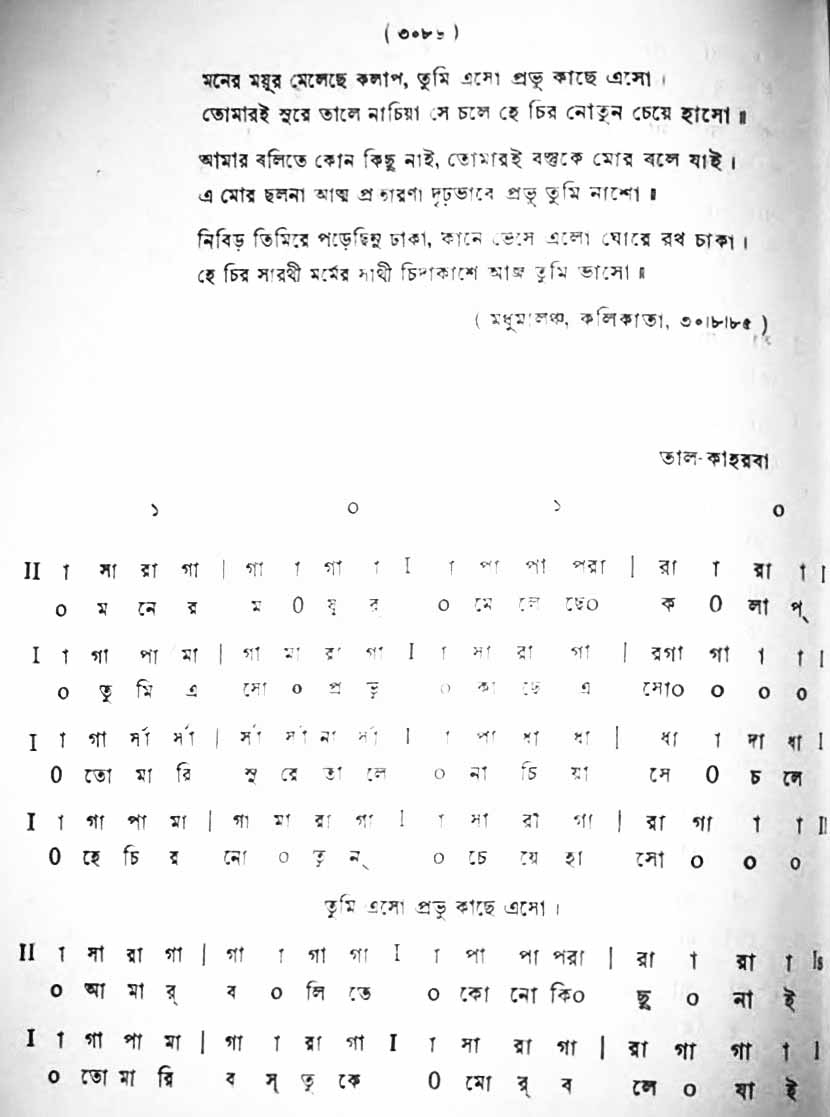 ( ৩০৮৬ )
মনের ময়ূর মেলেছে কলাপ, তুমি এসো প্রভু কাছে এসো ।
তোমারই সুরে তালে নাচিয়া সে চলে হে চির নোতুন চেয়ে হাসো ॥
আমার বলিতে কোন কিছু নাই, তোমারই বস্তুকে মোর বলে যাই ।
এ মোর ছলনা আত্ম প্রতারণা দৃঢ়ভাবে প্রভু তুমি নাশো ॥
নিবিড় তিমিরে পড়েছিনু ঢাকা, কানে ভেসে এলো ঘোরে রথ চাকা ।
হে চির সারথী মর্মের সাথী চিদাকাশে আজ তুমি ভাসো ॥
( মধুমালঞ্চ, কলিকাতা, ৩০।৮।৮৫ )
তাল- কাহরবা
১ ০ ১ ০
II া সা রা গা | গা া গা া I া পা পা পরা | রা া রা া I
০ ম নে র ম ০ য়ূ র ০ মে লে ছে০ ক ০ লা প্
I া গা পা মা | গা মা রা গা I া সা রা গা | রগা গা া া I
০ তু মি এ সো ০ প্র ভু ০ কা ছে এ সো০ ০ ০ ০
I া গা র্সা র্সা | র্সা র্সা না র্সা I া পা ধা ধা | ধা া দা ধা I
০ তো মা রি সু রে তা লে ০ না চি য়া সে ০ চ লে
I া গা পা মা | গা মা রা গা I া সা রা গা | রা গা া া II
০ হে চি র নো ০ তু ন্ ০ চে য়ে হা সো ০ ০ ০
তুমি এসো প্রভু কাছে এসো ।
II া সা রা গা | গা া গা গা I া পা পা পরা | রা া রা া I
০ আ মা র্ ব ০ লি তে ০ কো নো কি০ ছু ০ না ই
I া গা পা মা | গা া রা গা I া সা রা গা | রা গা গা া I
০ তো মা রি ব স্ তু কে ০ মো র্ ব লে ০ যা ই